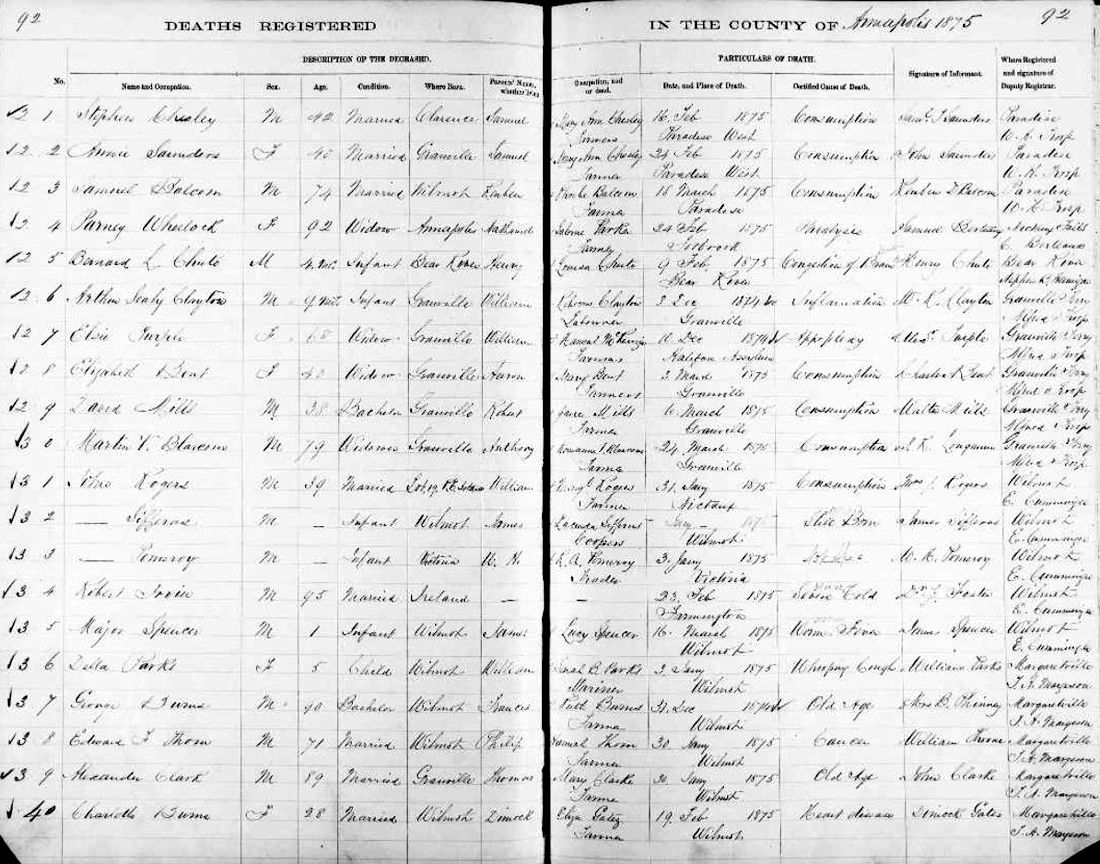 92
DEATHS REGISTERED
IN THE COUNTY OF Annapolis 1875
92
DESCRIPTION OF THE DECEASED.
PARTICULARS OF DEATH.
No. Name and Occupation. Sex. Age. Condition. Where Born. Parents' Names,
Occupation, and or dead. Date, and Place of Death. Certified Cause of Death. Signature of Informant. Where Registered and signature of Deputy Registrar.
12 1 Stephen Chesley M 42 Married Clarence Samuel Mary Ann Chesley 16 Feb 1875 Consumption Saml J Saunders Paradise
Farmers Paradise West
12 2 Annie Saunders F 40 Married Granville Samuel Mary Ann Chesley 24 Feb 1875 Consumption John Saunders Paradise
Farmer Paradise West
12 3 Samuel Balcom M 74 Married Wilmot Reuben Phebe Balcom 18 March 1875 Consumption Reuben D Balcom Paradise
Farmer Paradise
12 4 Parney Wheelock F 92 Widow Annapolis Nathaniel Parker 24 Feb 1875 Paralysis Samuel
Torbrook
12 5 Bernard L. Chute M 4 mo. Infant Bear River Henry Louisa Chute 9 Feb 1875 Congestion of Brain Henry Chute Bear River
Bear River
12 6 Arthur Sealy Clayton M 9 mo Infant Granville William Clayton 3 Dec 1874 Inflamation Wm K. Clayton Granville Ferry
Labourer Granville
12 7 Elsie Turple F 68 Widow Granville William 11 Dec 1874 Appoplexy Turple Granville Ferry
Farmer Halifax Assylum
12 8 Elizabeth Bent F 40 Widow Granville Aaron Mary Bent 3 March 1875 Consumption Charles Bent Granville Ferry
Farmers Granville
12 9 David Mills M 38 Bachelor Granville Robert Mills 6 March 1875 Consumption Walter Mills Granville Ferry
Farmer Granville
13 0 Martin V. M 79 Widower Granville Anthony 24 March 1875 Consumption Granville Ferry
Farmer Granville
13 1 John Rogers M 39 Married William Rogers 31 Jany 1875 Consumption Rogers Wilmot
Farmer Nictaux E. Cummings
13 2 — Sifferns M — Infant Wilmot James Lucinda Sifferns Jany — 1875 Still Born James Sifferns Wilmot
Coopers Wilmot E. Cummings
13 3 — Pomeroy M — Infant Victoria W. H. A. Pomeroy 3. Jany 1875 W. H. Pomeroy Wilmot
Trader Victoria E. Cummings
13 4 Robert Irvin M 95 Married Ireland — — 23. Feb 1875 Severe Cold J. Foster Wilmot
Farmington E. Cummings
13 5 Major Spencer M 1 Infant Wilmot James Lucy Spencer 16. March 1875 Worm Fever James Spencer Wilmot
Wilmot E. Cummings
13 6 Della Parks F 5 Child Wilmot William Sarah B. Parks 3. Jany 1875 Whooping Cough William Parks Margaretville
Mariner Wilmot T. A. Margeson
13 7 George Burns M 90 Bachelor Wilmot Francis Ruth Burns 31. Dec 1874 Old Age B. Phinney Margaretville
Farmer Wilmot T. A. Margeson
13 8 Edward F Thorn M 71 Married Wilmot Philip Thorn 30 Jany 1875 Cancer William Thorne Margaretville
Farmer Wilmot T. A. Margeson
13 9 Alexander Clark M 89 Married Granville Thomas Mary Clarke 30. Jany 1875 Old Age John Clarke Margaretville
Farmer Wilmot T. A. Margeson
1 40 Charlotte Burns F 28 Married Wilmot Dimock Eliza Gates 19. Feb 1875 Heart disease Dimock Gates Margaretville
Farmer Wilmot T. A. Margeson